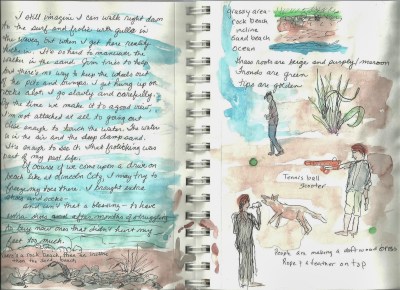 I still imagine I can walk right down
to the surf and frolic with gulls in
the waves, but when I get here reality
kicks in. It's so hard to maneuver the
walker in the sand. Jim tries to help
but there's no way to keep the wheels out
of the pits and bumps. I get hung up on
rocks also. I go slowly and carefully.
By the time we make it to a good view
I'm not attached at all to going out
close enough to touch the water. The water
is in the air and the deep damp sand.
It's enough to see it. What frolicking was
part of my past life.
Of course if we come upon a drive on
beach like at Lincoln City, I may try to
toes there. I brought extra
shoes and socks—
and isn't that a blessing — to have
extra shoes after months of struggling
to buy new ones that didn't hurt my
feet too much.
There's a rock beach, then the
then the sand beach
Grassy area-
rock beach
Sand beach
Ocean
these roots are beige and purpley/maroon
fronds are green
tips are golden
Tennis ball
shooter
People are making a driftwood cross
Rope & a feather on top